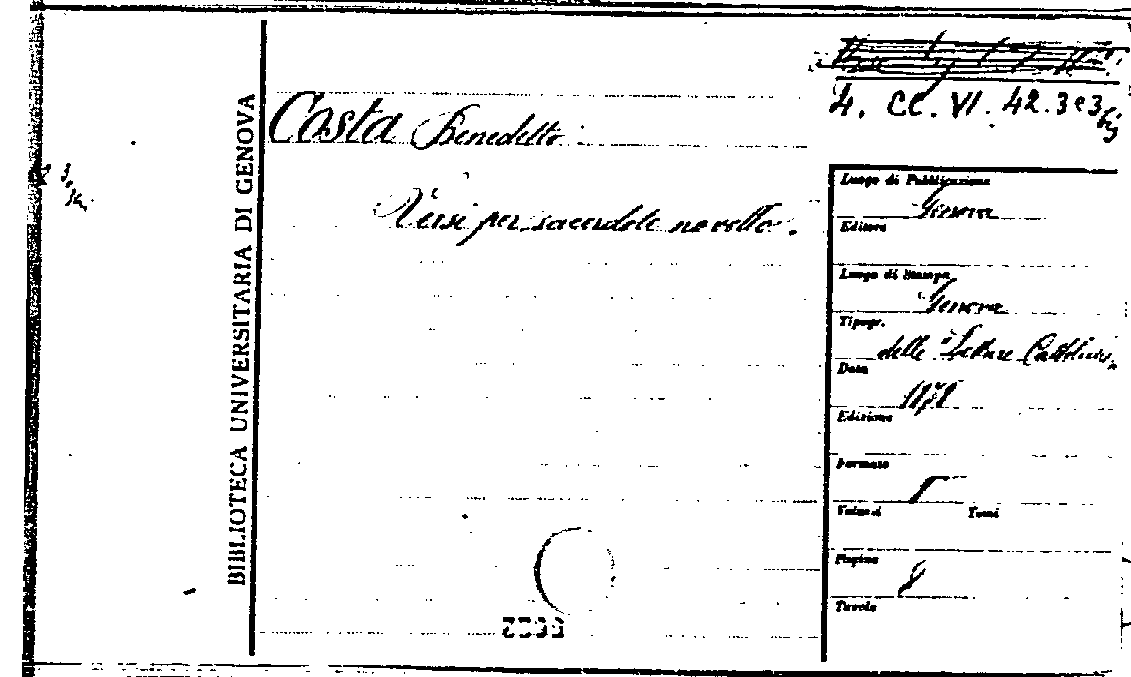 BIBLIOTECA UNIVERSITARIA DI GENOVA
4. CC. VI. 42. 3 e 3 bis
Costa Benedetto
Versi per sacerdote novello.
Luogo di Pubblicazione
Genova
Editore
Luogo di Stampa
Genova
Tipogr.
delle "Letture Cattoliche"
Data
Edizione
Formato
Volumi Tomi
Pagine
8
Tavole